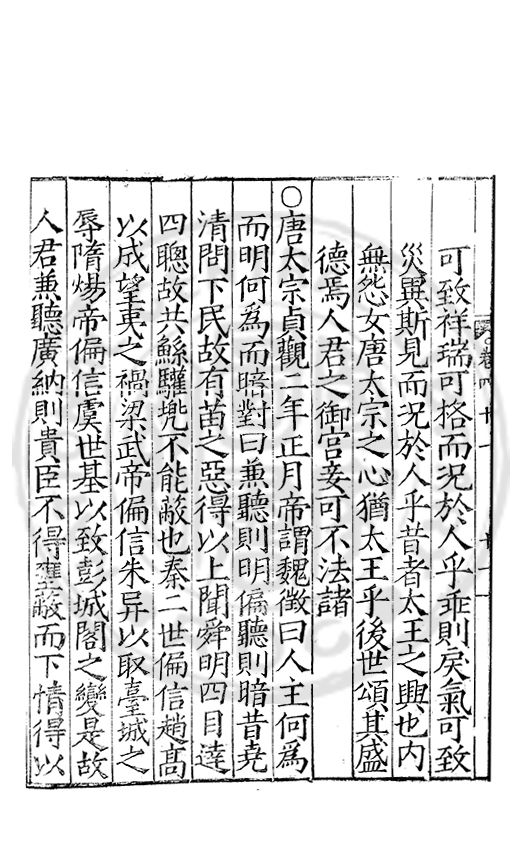 可致祥瑞可格而況於人乎乖則戾氣可致
災異斯見而況於人乎昔者太王之興也内
無怨女唐太宗之心猶太王乎後世頌其盛
德焉人君之御宮妾可不法諸
○唐太宗貞觀二年正月帝謂魏徵曰人主何爲
而明何爲而暗對曰兼聽則明偏聽則暗昔堯
清問下民故有苗之惡得以上聞舜明四目達
四聰故共鯀驩兜不能蔽也秦二世偏信趙高
以成望夷之禍梁武帝偏信朱异以取臺城之
辱隋煬帝偏信虞世基以致彭城閣之變是故
人君兼聽廣納則貴臣不得壅蔽而下情得以